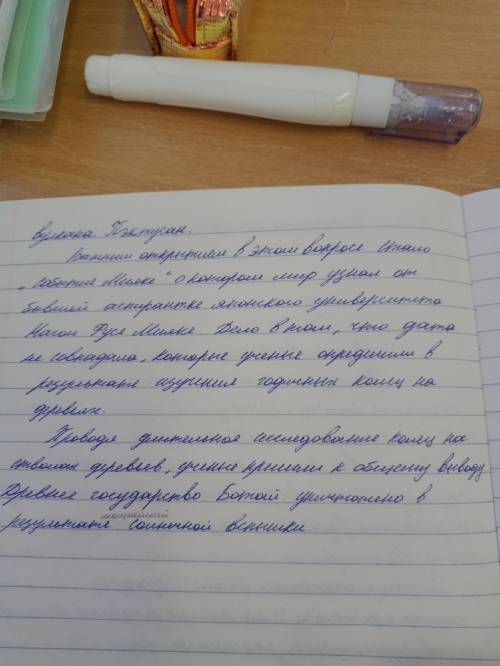 вулкана Пэктусан.
Важным открытием в этом вопросе стало
"событие Мияке" о котором мир узнал от
бывшей аспирантке японского университета
Нагои Фусе Мияке. Дело в том, что дата
не совпадала, которые ученые определили в
результате изучения годичных колец на
деревьях.
Проводя длительное исследование колец на
стволах деревьев, ученые пришли к общему выводу.
Древнее государство Бохай уничтожено в
мощнейшей
результате солнечной вспышки.